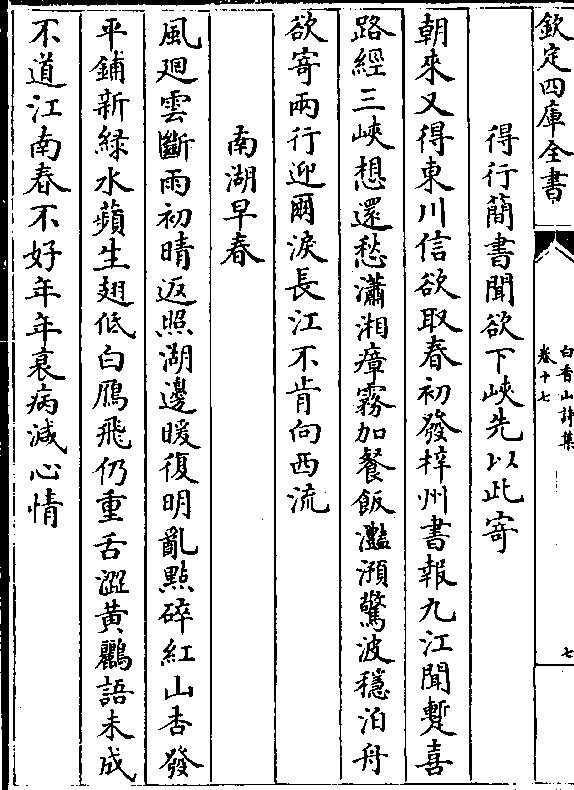 欽定四庫全書
白香山詩集
卷十七
七
得行簡書聞欲下峽先以此寄
朝來又得東川信欲取春初發梓州書報九江聞蹔喜
路經三峽想還愁瀟湘瘴霧加餐飯灩澦驚波穩泊舟
欲寄兩行迎爾淚長江不肯向西流
南湖早春
風廻雲斷雨初晴返照湖邊暖復明亂點碎紅山杏發
平鋪新緑水蘋生翅低白鴈飛仍重舌澀黄鸝語未成
不道江南春不好年年衰病減心情